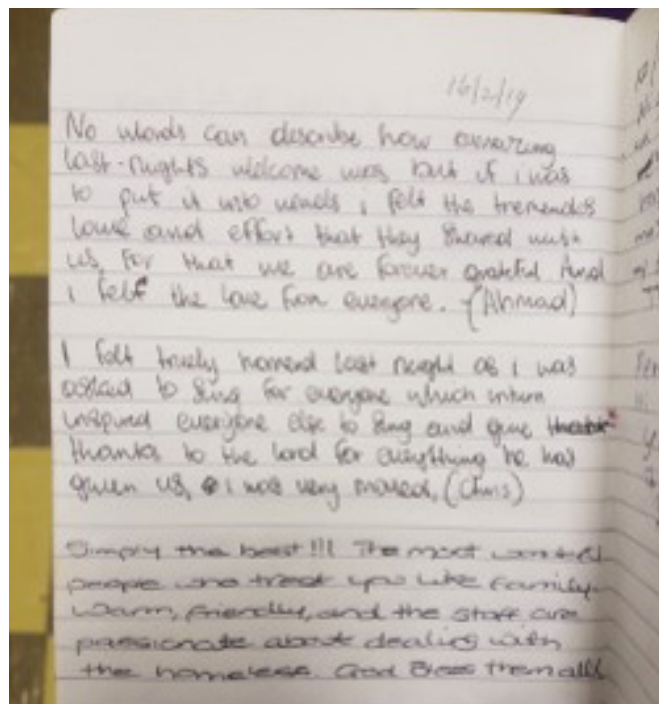 16/2/19
No words can describe how amazing
last nights welcome was but if i was
to put it into words i felt the tremendos
love and effort that they shared with
us, For that we are forever grateful And
i felt the love from everyone. (Ahmad)
I felt truely honerd last night as i was
asked to sing for everyone which inturn
inspired everyone else to sing and give
thanks to the lord for everything he has
given us, i was very moved, (Chris)
Simply the best!!! The most
people who treat you like family.
Warm, friendly, and the staff are
passionate about dealing with
the homeless. God Bless them all!